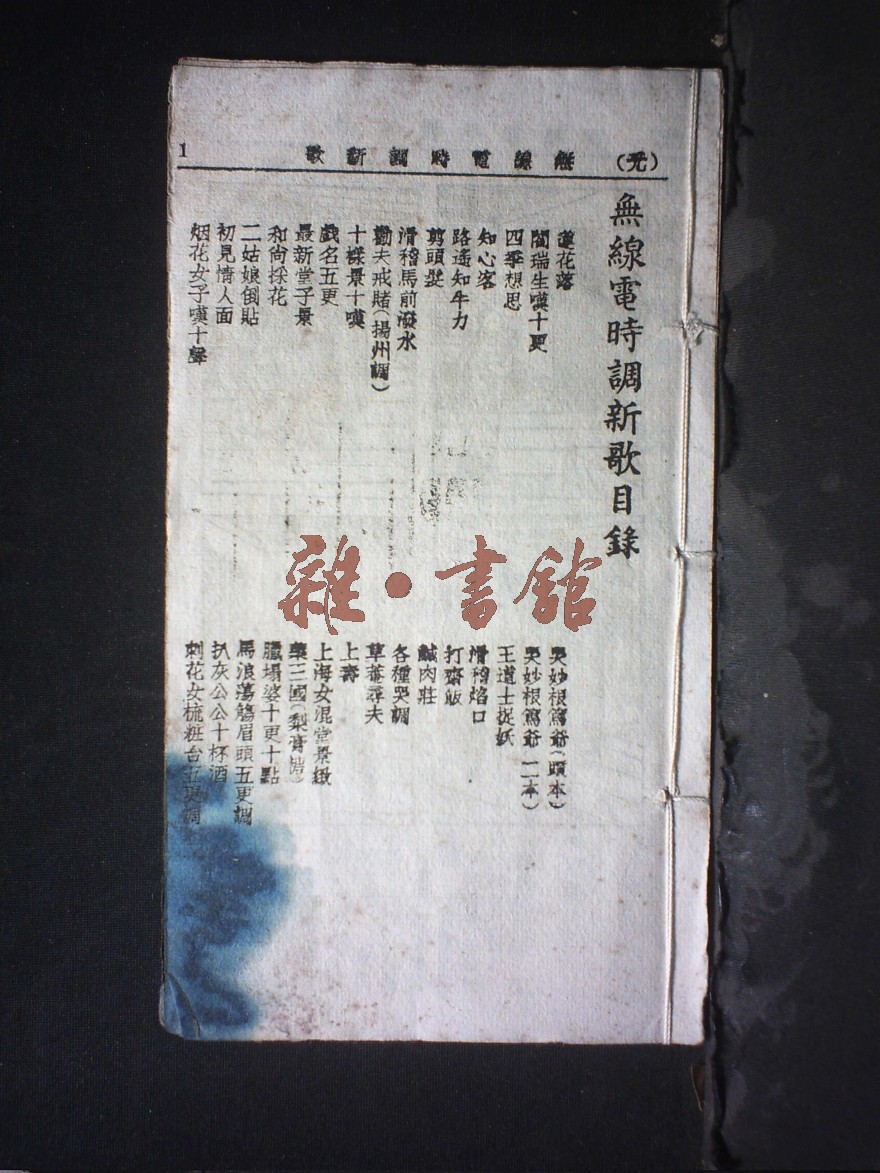 (元) 無線電時調新歌 1
無線電時調新歌目錄
蓮花落
閻瑞生嘆十更
四季想思
知心客
路遙知牛力
剪頭髮
滑稽馬前潑水
勸夫戒賭(揚州調)
十樣景十嘆
戲名五更
最新堂子景
和尙採花
二姑娘倒貼
初見情人面
烟花女子嘆十聲
哭妙根篤爺(頭本)
哭妙根篤爺(二本)
王道士捉妖
滑稽焰口
打齋飯
鹹肉莊
各種哭調
草菴尋夫
上壽
上海女混堂景緻
藥三國(梨膏糖)
臘塌婆十更十點
馬浪蕩觸眉頭五更調
扒灰公公十杯酒
刺花女梳粧台五更調
雜·書館